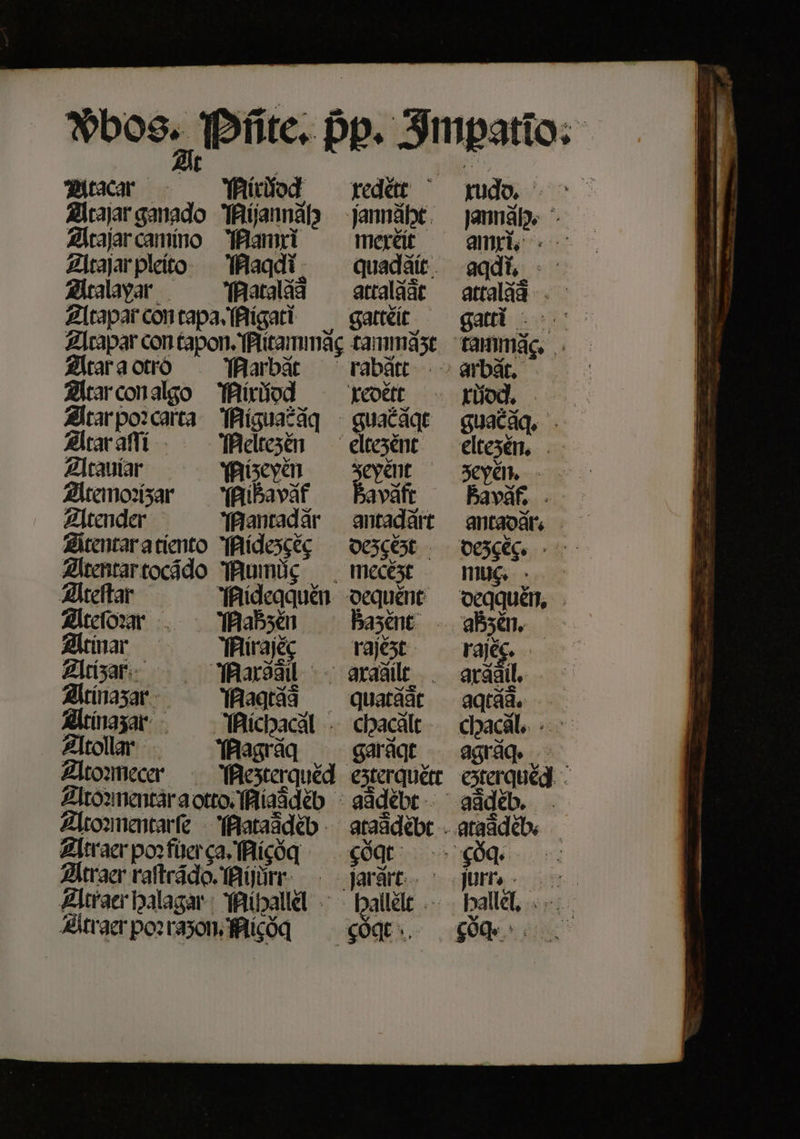 Vbos. Pñte. p̄p. Impatio:
At
Atacar Nixíod redĕtt rudo.
Atajar ganado Nijannăh jannăht jannăh.
Atajar camino Namxi mexĕit amxi.
Atajar pleito Naqdĭ quadăit. aqdĭ.
Atalayar Natalăă attalăăt attalăă
Atapar con tapa. Nigati gattĕit gatti
Atapar con tapon. Nitammăç tammăzt tammăç.
Atar a otro Narbăt rabătt arbăt.
Atar con algo Nixŭod xedĕtt xŭod.
Atar por carta Niguaĉăq guaĉăqt guaĉăq.
Atar assi Neltezĕn eltezĕnt eltezĕn.
Atauiar Nizeyĕn zeyĕnt zeyĕn.
Atemorizar Nihavăf havăft havăf.
Atender Nantadăr antadărt antadăr.
Atentar a tiento Nidezçĕç dezçĕzt dezçĕç.
Atentar tocãdo Numŭç mecĕzt muç.
Atestar Nideqquĕn dequĕnt deqquĕn.
Atesorar Nahzĕn hazĕnt ahzĕn.
Atinar Nirajĕç rajĕzt rajĕç.
Atizar. Naxăăil axaăilt axăăil.
Atinazar Naqtăă quatăăt aqtăă.
Atinazar Nichacăl chacălt chacăl.
Atollar Nagrăq garăqt agrăq.
Atormecer Nezterquĕd ezterquĕtt ezterquĕd
Atormentar a otro. Niaădĕb aădĕbt aădĕb.
Atormentarse Nataădĕb ataădĕbt ataădĕb.
Atraer por fuerça. Niçŏq çŏqt çŏq.
Atraer rastrãdo. Nijŭrr jarărt jurr.
Atraer halagar Nihallĕl hallĕlt hallĕl.
Atraer por razon. Niçŏq çŏqt çŏq.